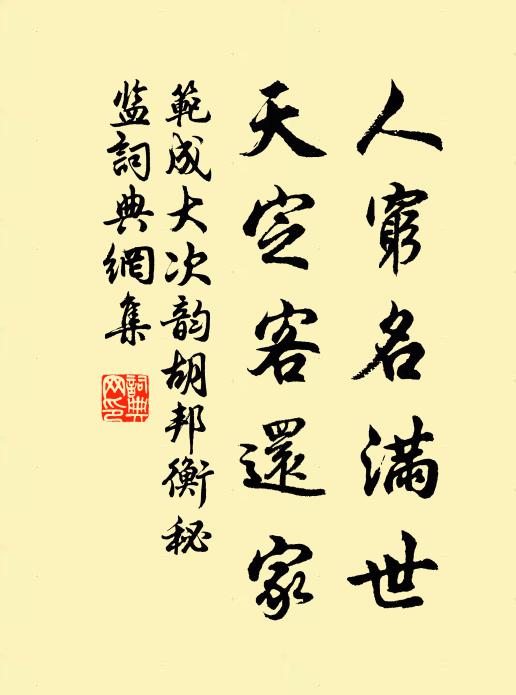 人窮名滿世
天定客還家
範成大次韵胡邦衡秘
监詞典網集
詞典
网印